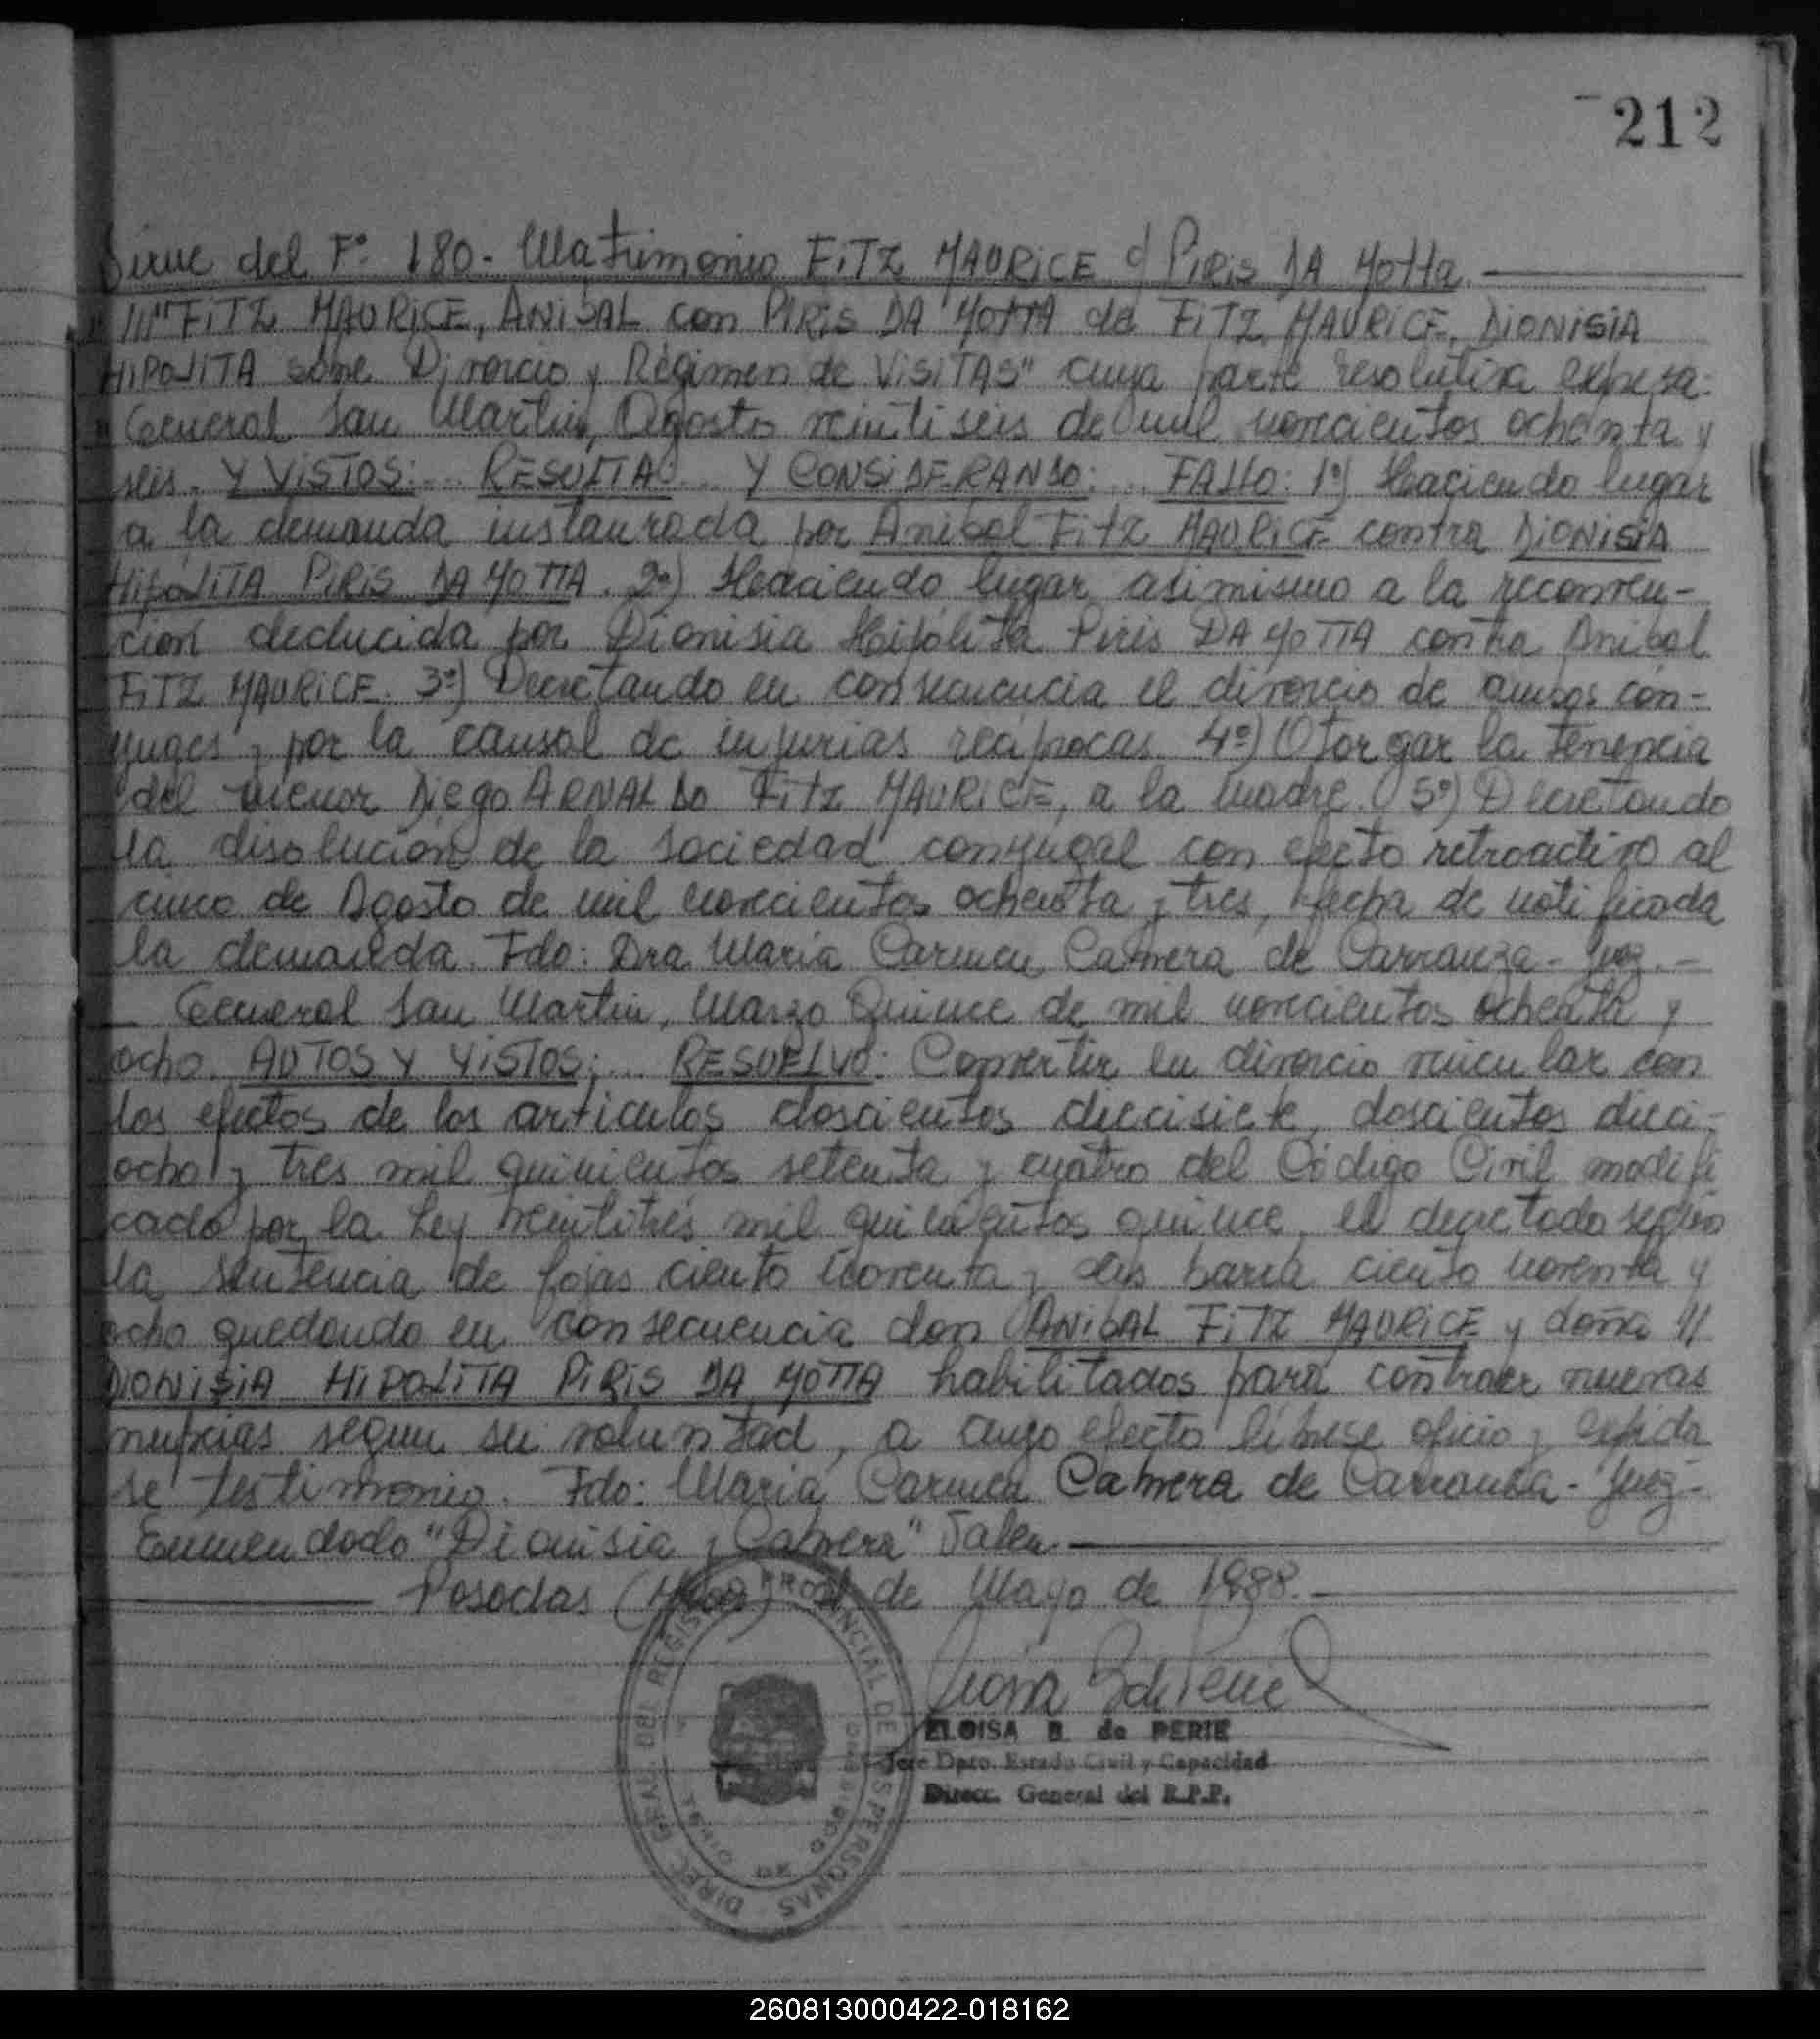 212
Sirve del Fº 180.- Matrimonio FITZ MAURICE c/ PIRIS DA MOTTA.
///"FITZ MAURICE, ANIBAL con PIRIS DA MOTTA de FITZ MAURICE, DIONISIA
HIPOLITA sobre Divorcio y Régimen de VISITAS" cuya parte resolutiva expresa:
"General San Martín, Agosto veintiseis de mil novecientos ochenta y
seis. Y VISTOS:... RESULTA:... Y CONSIDERANDO:... FALLO: 1º) Haciendo lugar
a la demanda instaurada por Anibal FITZ MAURICE contra DIONISIA
HIPÓLITA PIRIS DA MOTTA. 2º) Haciendo lugar asimismo a la reconven-
ción deducida por Dionisia Hipólita Piris DA MOTTA contra Anibal
FITZ MAURICE. 3º) Decretando en consecuencia el divorcio de ambos cón-
yuges, por la causal de injurias recíprocas. 4º) Otorgar la tenencia
del menor Diego ARNALDO FITZ MAURICE, a la madre. 5º) Decretando
la disolución de la sociedad conyugal con efecto retroactivo al
cinco de Agosto de mil novecientos ochenta y tres, fecha de notificada
la demanda. Fdo: Dra María Carmen Cabrera de Carranza - Juez.-
General San Martín, Marzo Quince de mil novecientos ochenta y
ocho. AUTOS Y VISTOS:... RESUELVO: Convertir en divorcio vincular con
los efectos de los artículos doscientos diecisiete, doscientos dieci-
ocho y tres mil quinientos setenta y cuatro del Código Civil modifi
cado por la Ley veintitrés mil quinientos quince, el decretado según
la sentencia de fojas ciento noventa y seis ciento noventa y
ocho quedando en consecuencia don ANIBAL FITZ MAURICE y doña //
DIONISIA HIPOLITA PIRIS DA MOTTA habilitados para contraer nuevas
nupcias segun su voluntad, a cuyo efecto líbrese oficio y expída
se testimonio. Fdo: María Carmen Cabrera de Carranza - Juez-
Enmendado "Dionisia y Cabrera" Valen.
Posadas (Mnes) de Mayo de 1988.
ELOISA B. de PERIE
Jefe Dpto. Estado Civil y Capacidad
Direcc. General del R.P.P.
DIREC. GRAL. DEL REGISTRO PROVINCIAL DE LAS PERSONAS
260813000422-018162